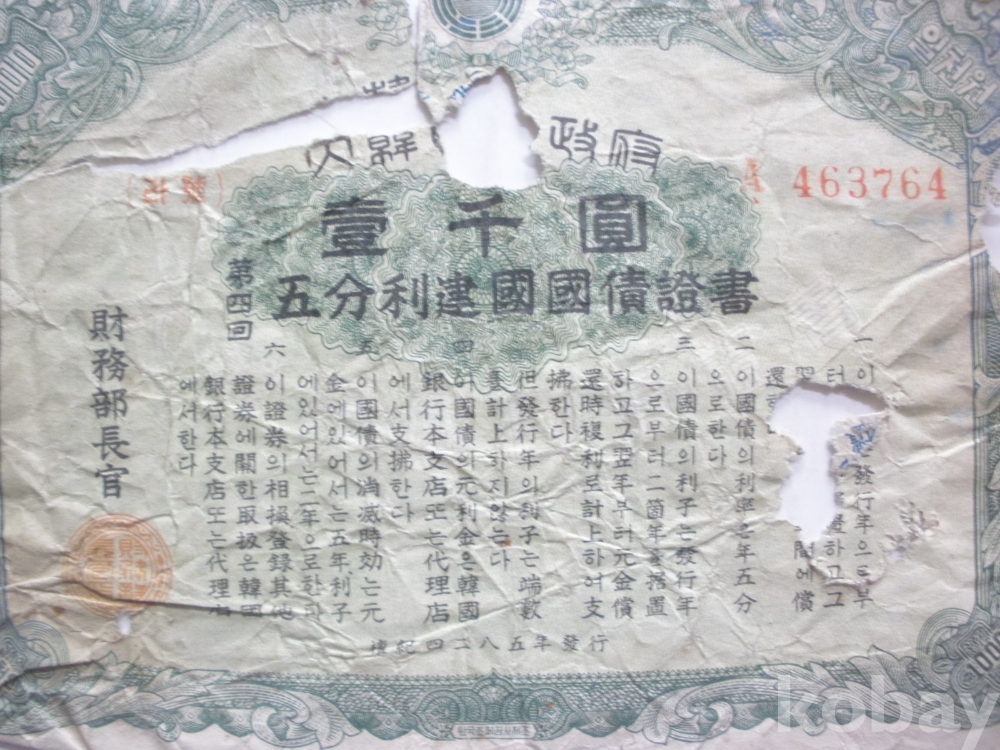 일천원
政府
463764
壹千圓
五分利建國國債證書
第四回
發行年으로부
二 이國債의利率은年五分
으로한다
三 이國債의利子는發行年
으로부터二箇年을据置
하고그翌年부터元金償
還時複利로計上하여支
拂한다
但發行年의利子는端數
를計上하지않는다
四 이國債의元利金은韓國
銀行本支店또는代理店
에서支拂한다
五 이國債의消滅時効는元
金에있어서는五年利子
에있어서는二年으로한다
六 이證券의相換登錄其他
證券에關한取扱은韓國
銀行本支店또는代理店
에서한다
財務部長官
檀紀四二八五年發行
kobay